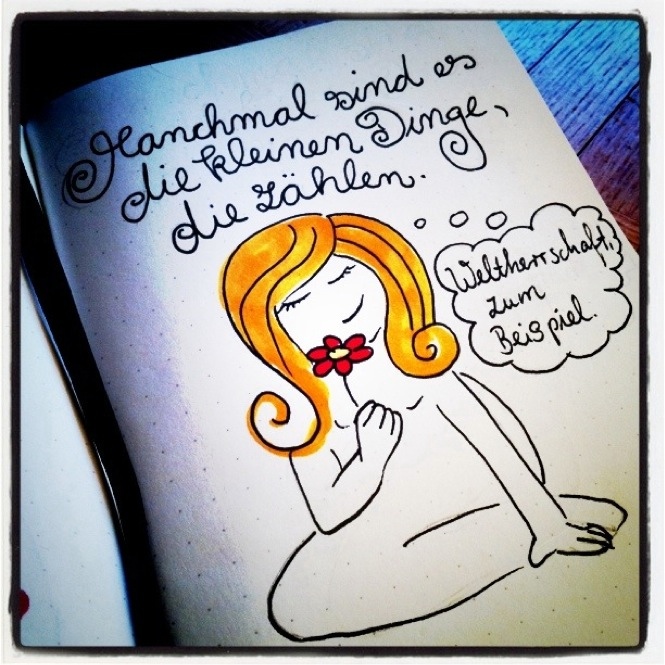 Manchmal sind es
die kleinen Dinge,
die zählen.
Weltherrschaft,
zum
Beispiel.